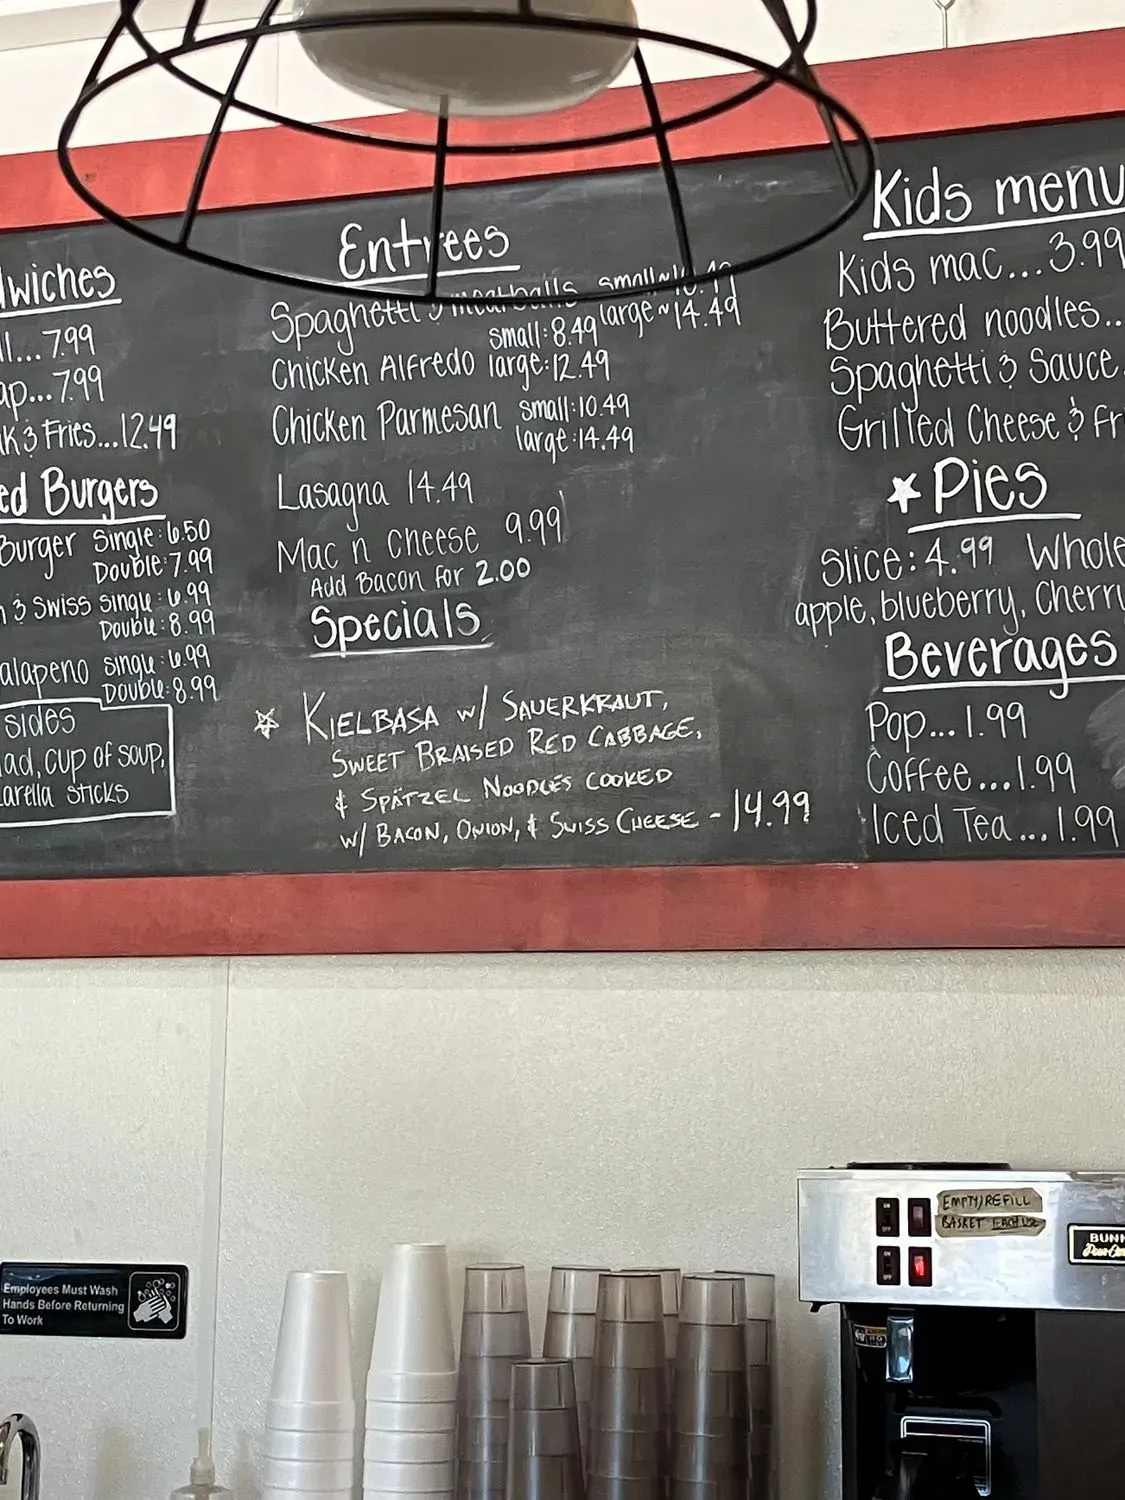 Entrees
Spaghetti & meatballs small~10.49
large~14.49
Chicken Alfredo small:8.49
large:12.49
Chicken Parmesan small:10.49
large:14.49
Lasagna 14.49
Mac n cheese 9.99
Add Bacon for 2.00
Specials
☆ KIELBASA w/ SAUERKRAUT,
SWEET BRAISED RED CABBAGE,
& SPÄTZEL NOODLES COOKED
w/ BACON, ONION, & SWISS CHEESE - 14.99
...7.99
...7.99
& Fries...12.49
Burgers
Burger Single:6.50
Double:7.99
& Swiss Single:6.99
Double:8.99
Single:6.99
Double:8.99
sides
cup of soup,
sticks
Kids menu
Kids mac...3.99
Buttered noodles..
Spaghetti & Sauce
Grilled Cheese &
★ Pies
Slice:4.99 Whole
apple, blueberry, Cherry
Beverages
Pop...1.99
Coffee...1.99
Iced Tea...1.99
Employees Must Wash
Hands Before Returning
To Work
ON
OFF
ON
OFF
EMPTY/REFILL
BASKET EACH USE
BUNN